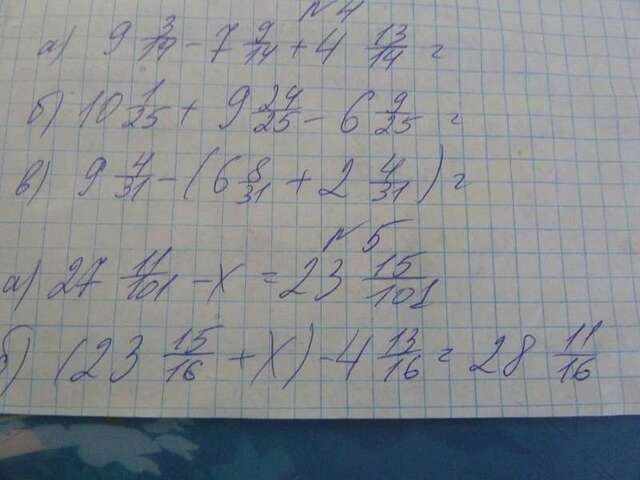 №4
а) 9 3/14 - 7 9/14 + 4 13/14 =
б) 10 1/25 + 9 24/25 - 6 9/25 =
в) 9 4/31 - (6 8/31 + 2 4/31) =
№5
а) 27 11/101 - х = 23 15/101
б) (23 15/16 + х) - 4 13/16 = 28 11/16